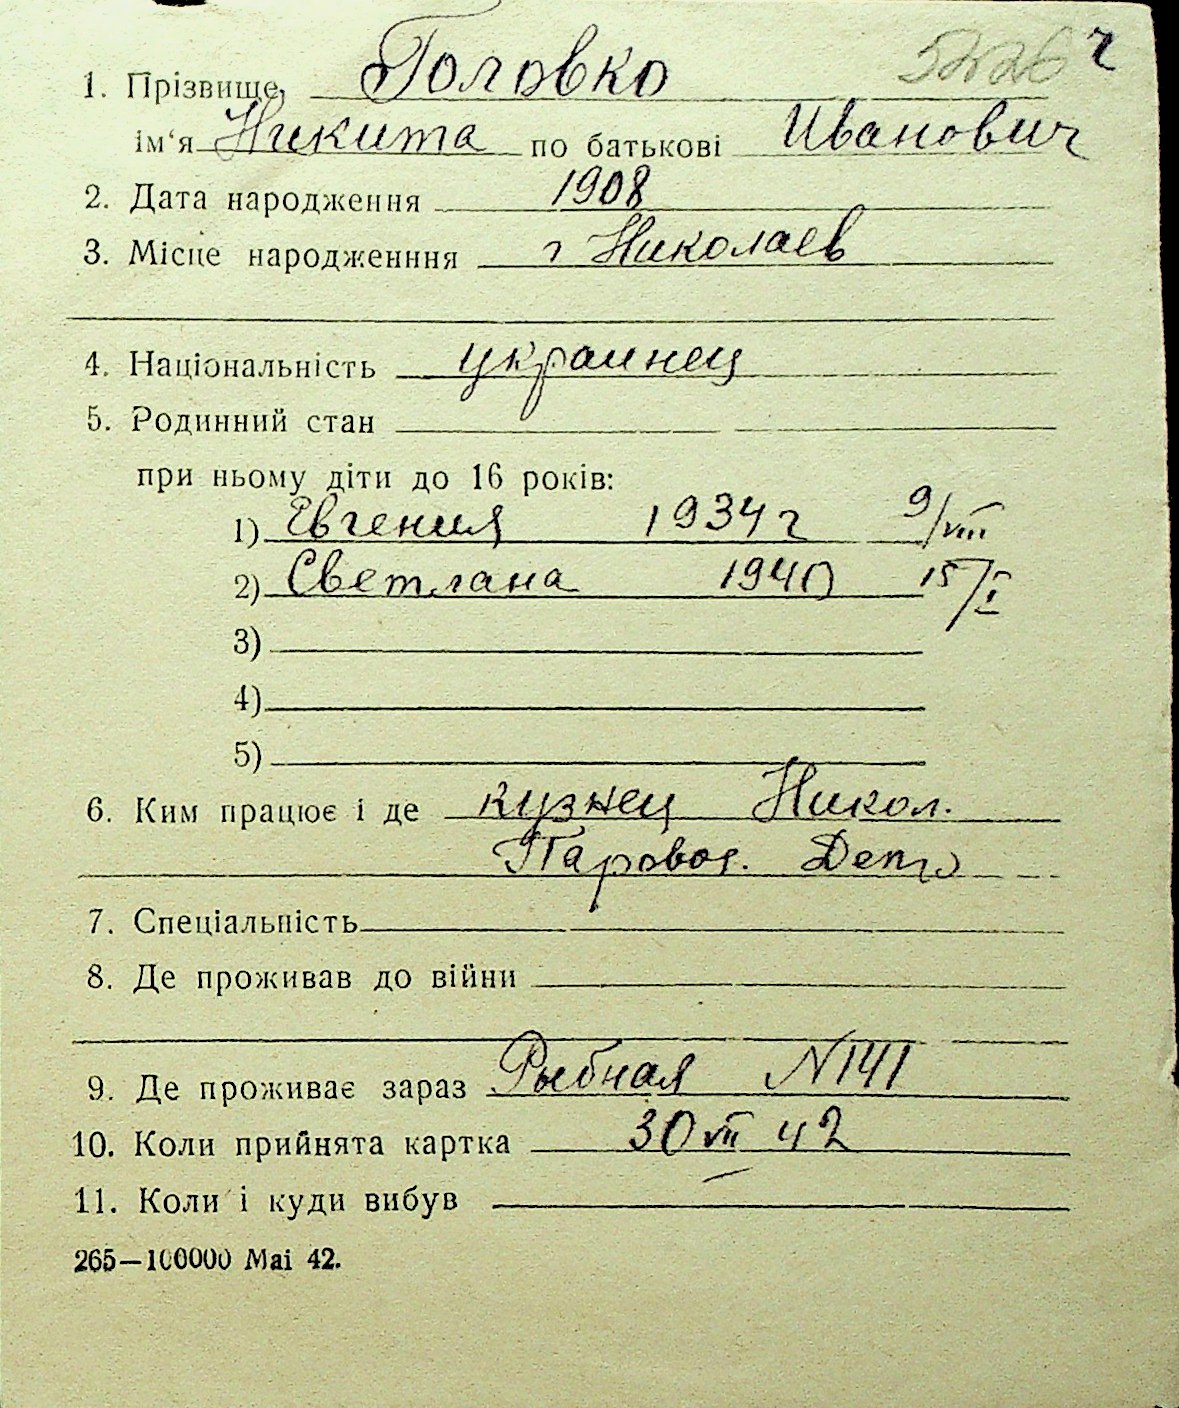 5226 г
1. Прізвище, Головко
ім'я Никита по батькові Иванович
2. Дата народження 1908
3. Місце народженння г Николаев
4. Національність украинец
5. Родинний стан
при ньому діти до 16 років:
1) Евгения 1934 г 9/VIII
2) Светлана 1940 15/I
3)
4)
5)
6. Ким працює і де кузнец Никол.
Паровоз. Депо
7. Спеціальність
8. Де проживав до війни
9. Де проживає зараз Рыбная N 141
10. Коли прийнята картка 30 VII 42
11. Коли і куди вибув
265—100000 Mai 42.